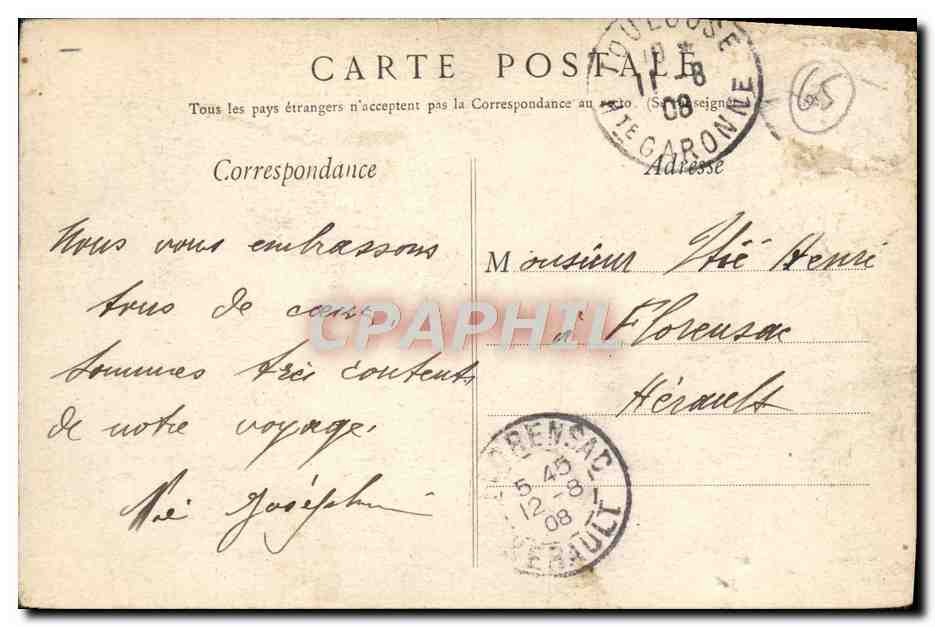 CARTE POSTALE
Tous les pays étrangers n'acceptent pas la Correspondance au recto (Se renseigner
TOULOUSE
11 -8
08
Hte GARONNE
65
Correspondance
Adresse
Nous vous embrassons
tous de coeur,
Sommes très contents
de notre voyage.
Joséphine
Monsieur Henri
à Florensac
Hérault
CPAPHIL
FLORENSAC
5 45
12 -8
08
HERAULT